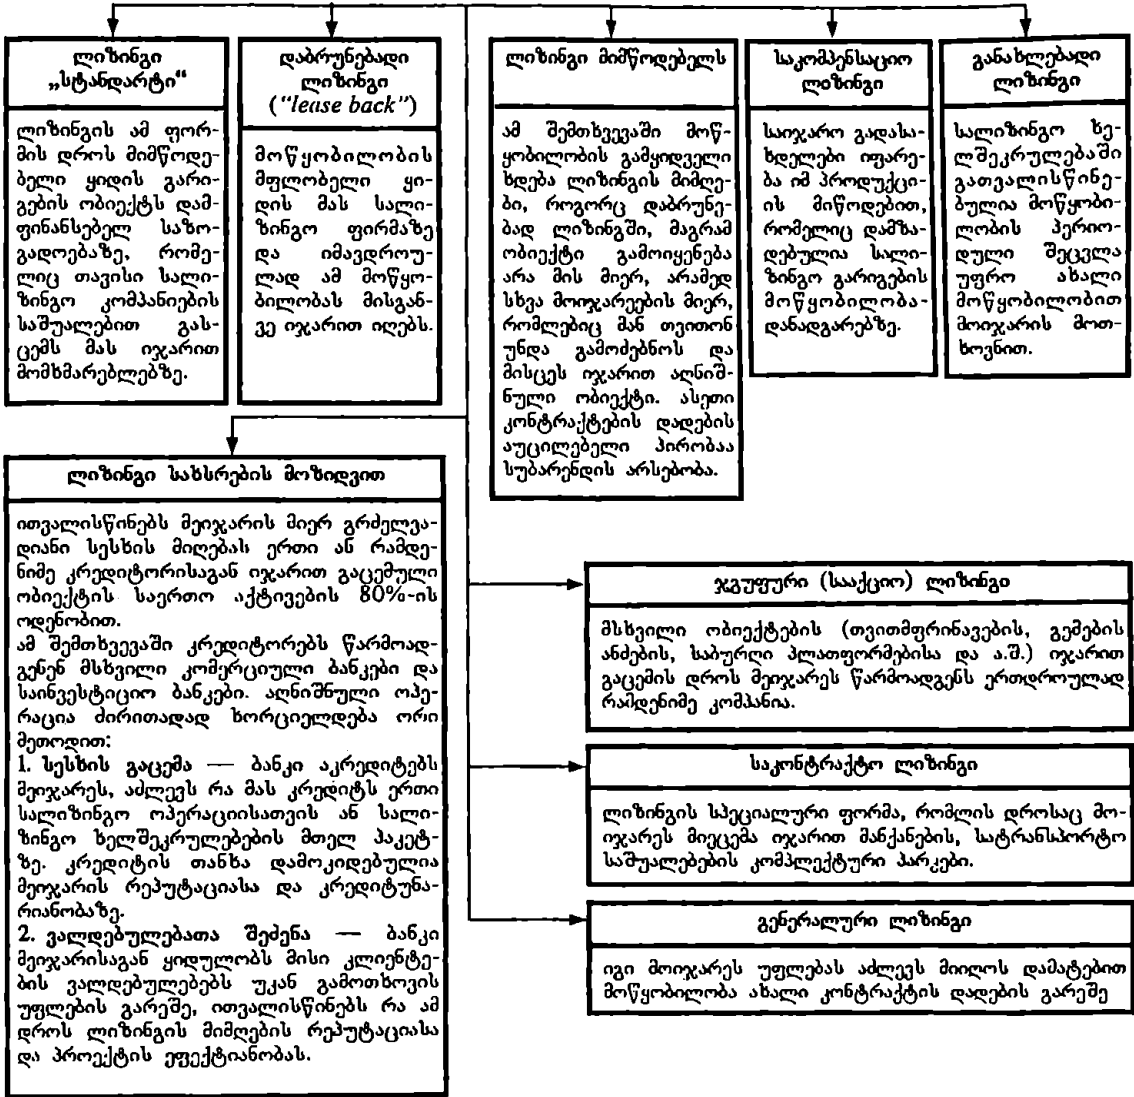 ლიზინგი
„სტანდარტი“
ლიზინგის ამ ფორ-
მის დროს მიმწოდე-
ბელი ყიდის გარი-
გების ობიექტს დამ-
ფინანსებელ საზო-
გადოებაზე, რომე-
ლიც თავისი სალი-
ზინგო კომპანიების
საშუალებით გას-
ცემს მას იჯარით
მომხმარებლებზე.
დაბრუნებადი
ლიზინგი
("lease back")
მოწყობილობის
მფლობელი ყი-
დის მას სალი-
ზინგო ფირმაზე
და იმავდროუ-
ლად ამ მოწყო-
ბილობას მისგან-
ვე იჯარით იღებს.
ლიზინგი მიმწოდებელს
ამ შემთხვევაში მოწ-
ყობილობის გამყიდველი
ხდება ლიზინგის მიმღე-
ბი, როგორც დაბრუნე-
ბად ლიზინგში, მაგრამ
ობიექტი გამოიყენება
არა მის მიერ, არამედ
სხვა მოიჯარეების მიერ,
რომლებიც მან თვითონ
უნდა გამოძებნოს და
მისცეს იჯარით აღნიშ-
ნული ობიექტი. ასეთი
კონტრაქტების დადების
აუცილებელი პირობაა
სუბარენდის არსებობა.
საკომპენსაციო
ლიზინგი
საიჯარო გადასა-
ხდელები იფარე-
ბა იმ პროდუქცი-
ის მიწოდებით,
რომელიც დამზა-
დებულია სალი-
ზინგო გარიგების
მოწყობილობა-
დანადგარებზე.
განახლებადი
ლიზინგი
სალიზინგო ხე-
ლშეკრულებაში
გათვალისწინე-
ბულია მოწყობი-
ლობის პერიო-
დული შეცვლა
უფრო ახალი
მოწყობილობით
მოიჯარის მოთ-
ხოვნით.
ლიზინგი სახსრების მოზიდვით
ითვალისწინებს მეიჯარის მიერ გრძელვა-
დიანი სესხის მიღებას ერთი ან რამდე-
ნიმე კრედიტორისაგან იჯარით გაცემული
ობიექტის საერთო აქტივების 80%-ის
ოდენობით.
ამ შემთხვევაში კრედიტორებს წარმოად-
გენენ მსხვილი კომერციული ბანკები და
საინვესტიციო ბანკები. აღნიშნული ოპე-
რაცია ძირითადად ხორციელდება ორი
მეთოდით:
1. სესხის გაცემა — ბანკი აკრედიტებს
მეიჯარეს, აძლევს რა მას კრედიტს ერთი
სალიზინგო ოპერაციისათვის ან სალი-
ზინგო ხელშეკრულებების მთელ პაკეტ-
ზე. კრედიტის თანხა დამოკიდებულია
მეიჯარის რეპუტაციასა და კრედიტუნა-
რიანობაზე.
2. ვალდებულებათა შეძენა — ბანკი
მეიჯარისაგან ყიდულობს მისი კლიენტე-
ბის ვალდებულებებს უკან გამოთხოვის
უფლების გარეშე, ითვალისწინებს რა ამ
დროს ლიზინგის მიმღების რეპუტაციასა
და პროექტის ეფექტიანობას.
ჯგუფური (სააქციო) ლიზინგი
მსხვილი ობიექტების (თვითმფრინავების, გემების
ანძების, საბურღი პლათფორმებისა და ა.შ.) იჯარით
გაცემის დროს მეიჯარეს წარმოადგენს ერთდროულად
რამდენიმე კომპანია.
საკონტრაქტო ლიზინგი
ლიზინგის სპეციალური ფორმა, რომლის დროსაც მო-
იჯარეს მიეცემა იჯარით მანქანების, სატრანსპორტო
საშუალებების კომპლექტური პარკები.
გენერალური ლიზინგი
იგი მოიჯარეს უფლებას აძლევს მიიღოს დამატებით
მოწყობილობა ახალი კონტრაქტის დადების გარეშე